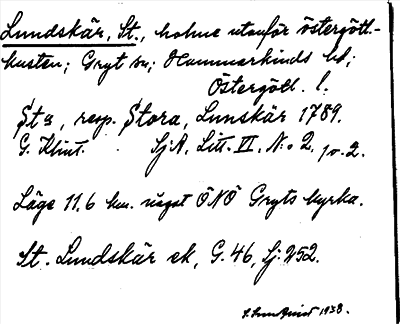 Lundskär, St., holme utanför östergötl.-
kusten; Gryt sn; Hammarkinds hd;
Östergötl. l.
St:a, resp. Stora, Lunskär 1789.
G. Klint. SjA, Litt. VI. N:o 2, 1v.2.
Läge 11.6 km. något ÖNÖ Gryts kyrka.
St. Lundskär ek, G.46, Sj.252.
1938.